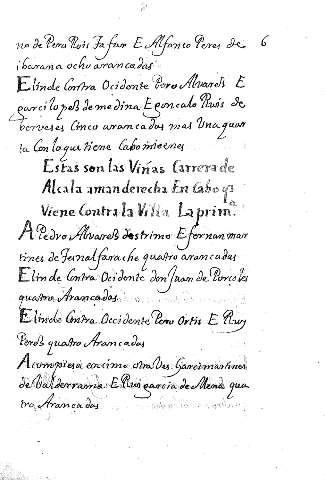 6
no de Peru Ruis Jafun E Alfonso Peres de
ibarana ocho arancadas
Elinde Contra Ocidente Pero Alvares E
garcilopes de medina E goncalo Ruis de
berveses Cinco arancadas mas Una quar
ta Con lo que tiene Cabo
Estas son las Viñas Carrera de
Alcala amanderecha En Cabo qª
Viene Contra la Villa La prim.ª
A Pedro Alvares destrimo E fernan mar
tines de Junalfarache quatro arancadas
Elinde Contra Ocidente don Juan de Porcoles
quatro Arancadas
Elinde Contra Occidente Pero Ortis E Ruy
Peres quatro Arancadas
Acompiesa encimo otra Ves. Garcimartines
de Valderrama E Rui garcia de Mena qua
tro Arancadas